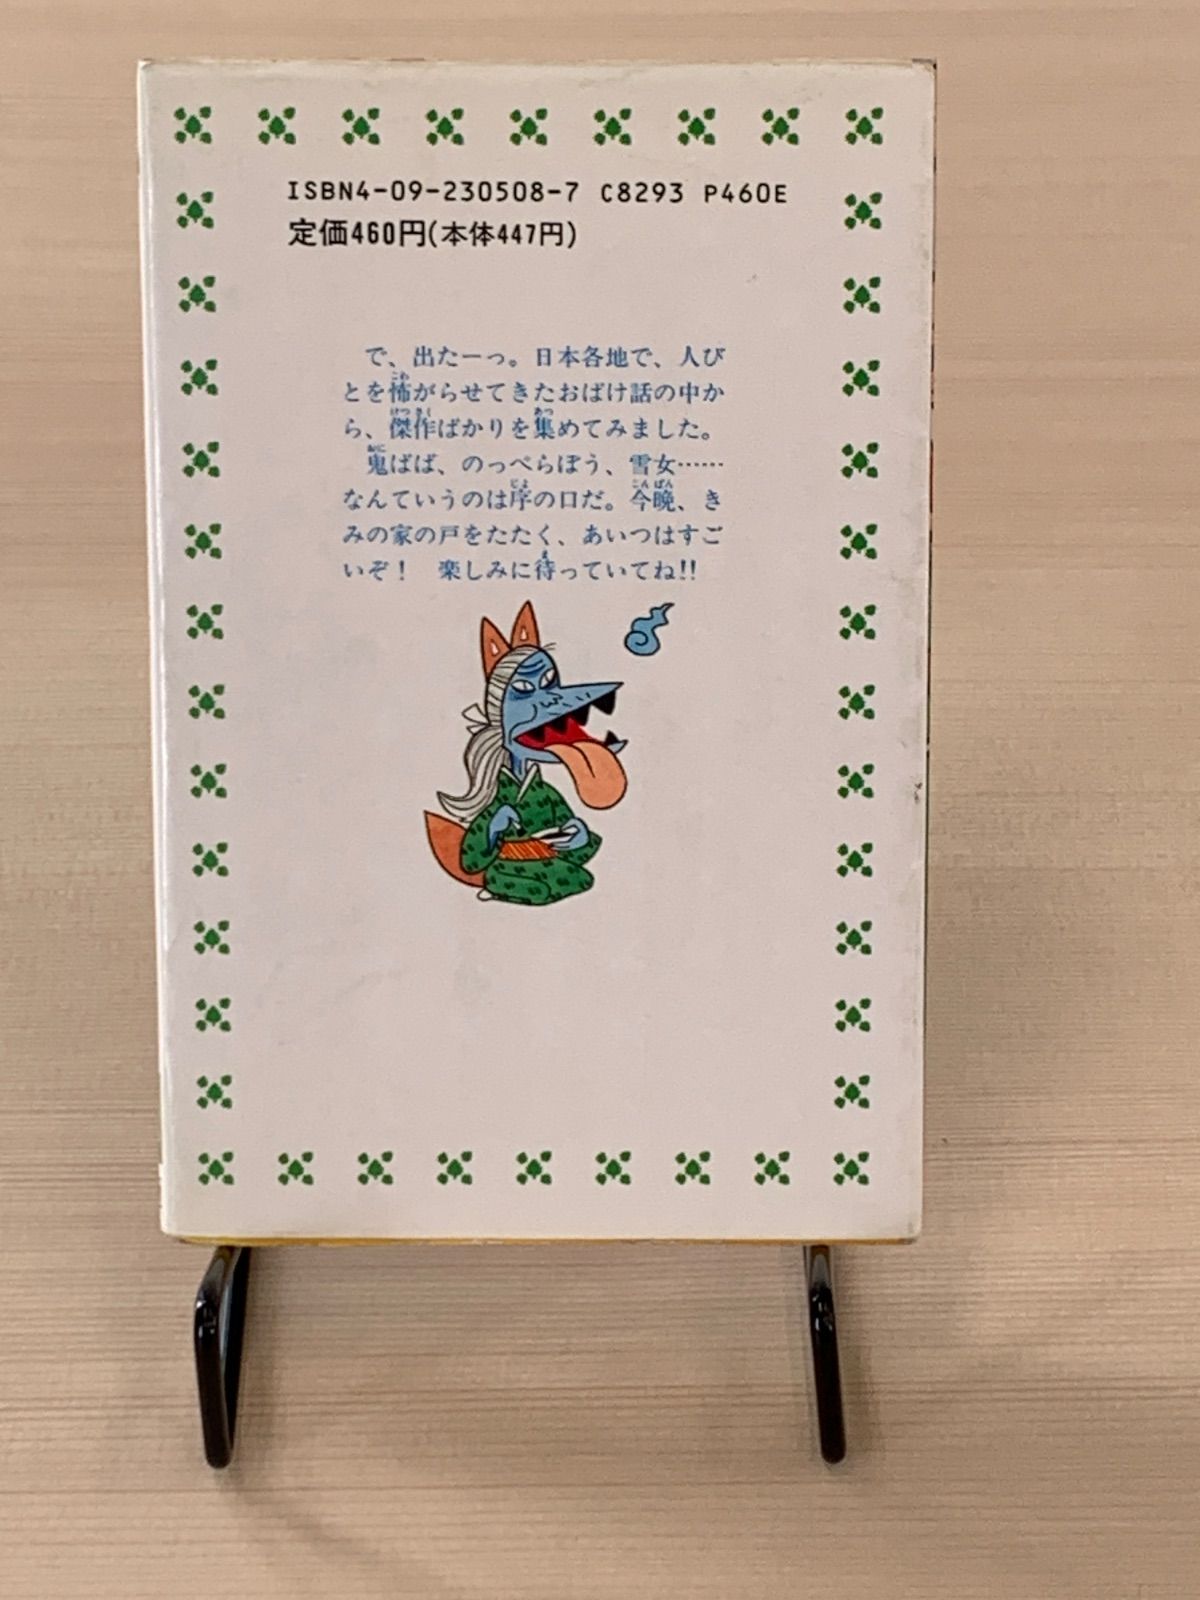 ISBN4-09-230508-7 C8293 P460E
定価460円(本体447円)
で、出たーっ。日本各地で、人び
とを怖がらせてきたおばけ話の中か
ら、傑作ばかりを集めてみました。
鬼ばば、のっぺらぼう、雪女……
なんていうのは序の口だ。今晩、き
みの家の戸をたたく、あいつはすご
いぞ！ 楽しみに待っていてね!!